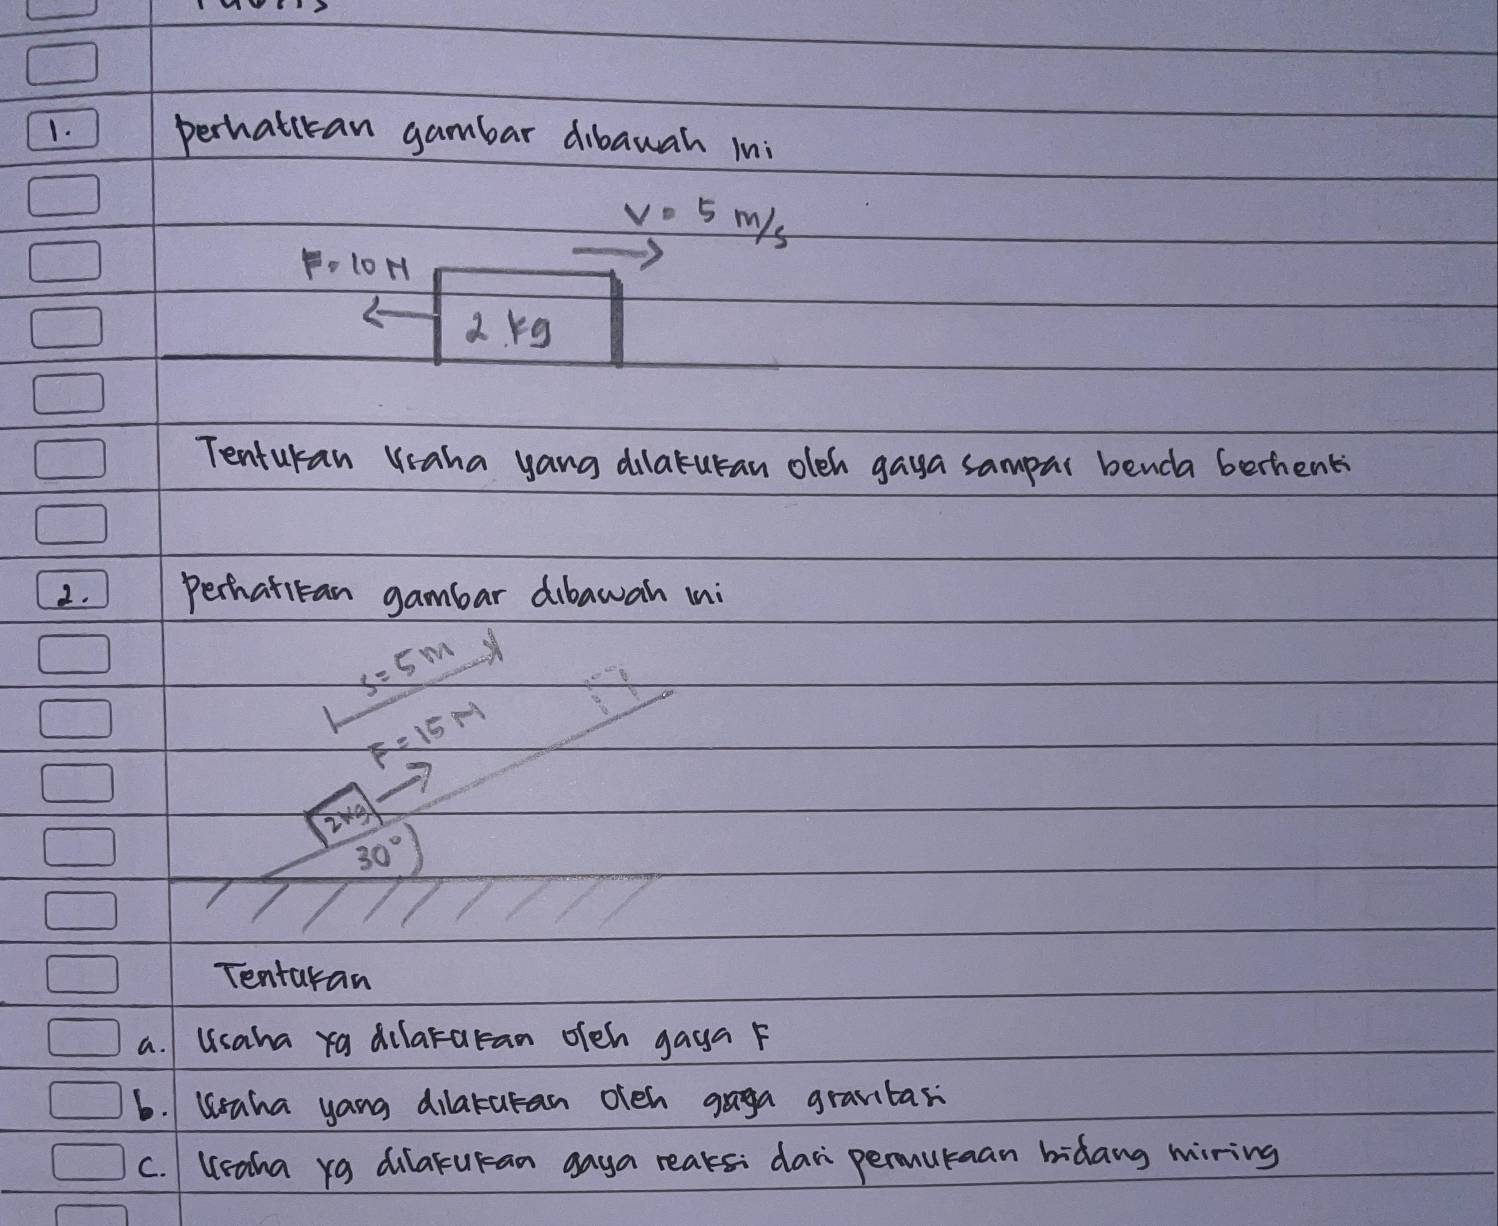 1. perhatikan gambar dibawah ini
V = 5 m/s
F = 10 N
2 kg
Tentukan Usaha yang dilakukan oleh gaya sampai benda berhenti
2. Perhatikan gambar dibawah ini
s = 5 m
F = 15 N
2 kg
30°
Tentukan
a. Usaha yg dilakukan oleh gaya F
b. Usaha yang dilakukan oleh gaya gravitasi
c. Usaha yg dilakukan gaya reaksi dari permukaan bidang miring